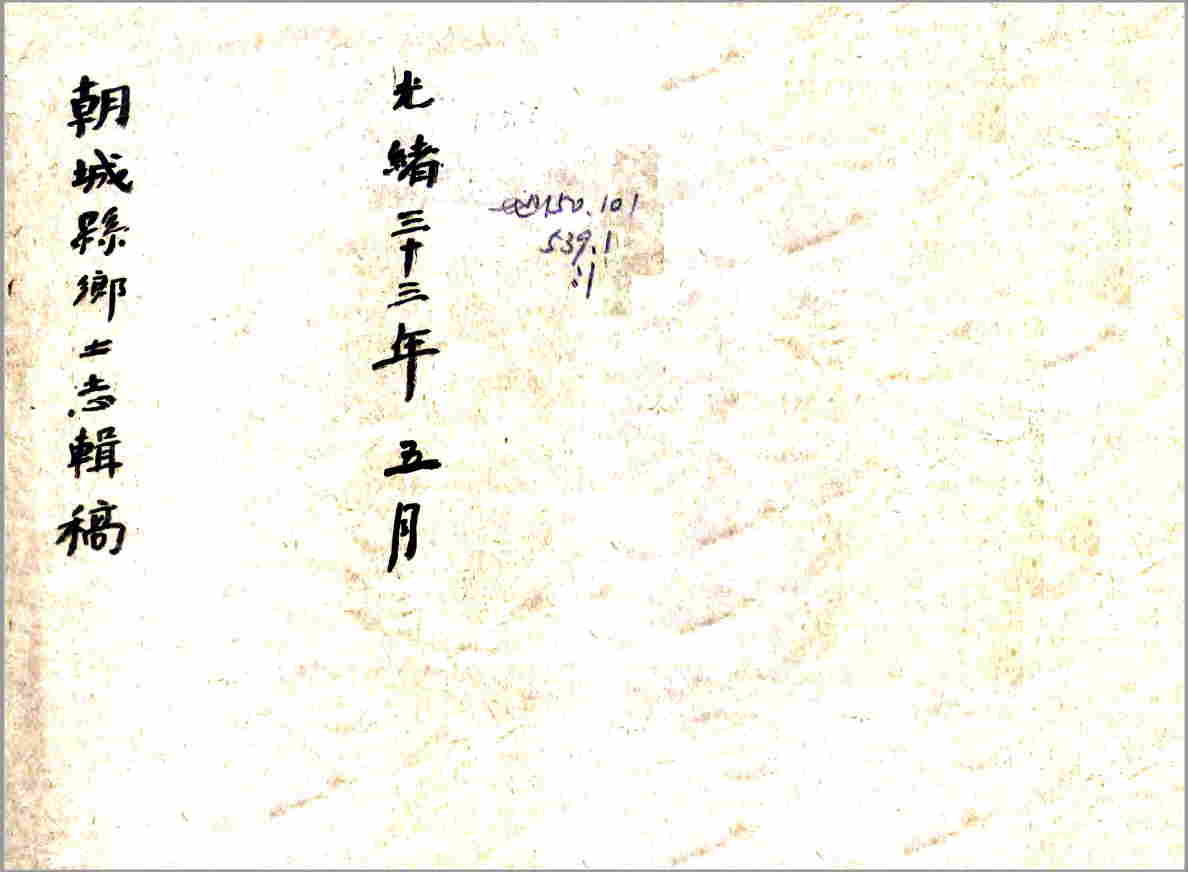 光緒三十三年五月
朝城縣鄉土志輯稿
150.101
539.1
:1